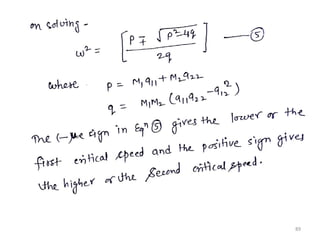 on solving -
ω² = [ P ∓ √P²-4q / 2q ] —— ⑤
where P = M₁a₁₁ + M₂a₂₂
q = M₁M₂ (a₁₁a₂₂ - a₁₂²)
The (-)ve sign in Eqⁿ ⑤ gives the lower or the
first critical speed and the positive sign gives
the higher or the second critical speed.
89